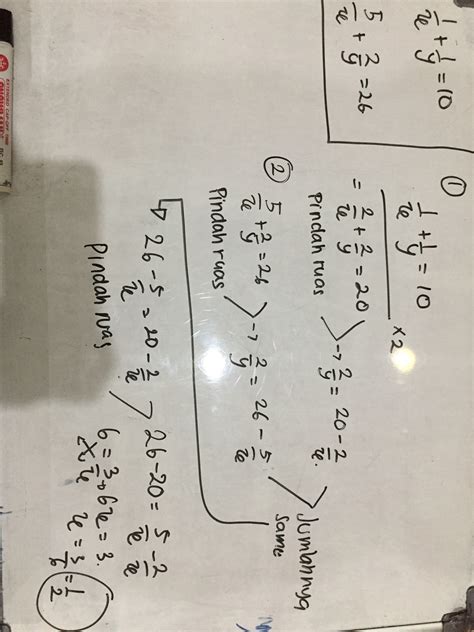 1/x + 1/y = 10
5/x + 2/y = 26
① 1/x + 1/y = 10
×2
= 2/x + 2/y = 20
Pindah ruas
→ 2/y = 20 - 2/x
② 5/x + 2/y = 26
Pindah ruas
→ 2/y = 26 - 5/x
Jumlahnya
same
26 - 5/x = 20 - 2/x
Pindah ruas
26 - 20 = 5/x - 2/x
6 = 3/x → 6x = 3
x = 3/6 = 1/2